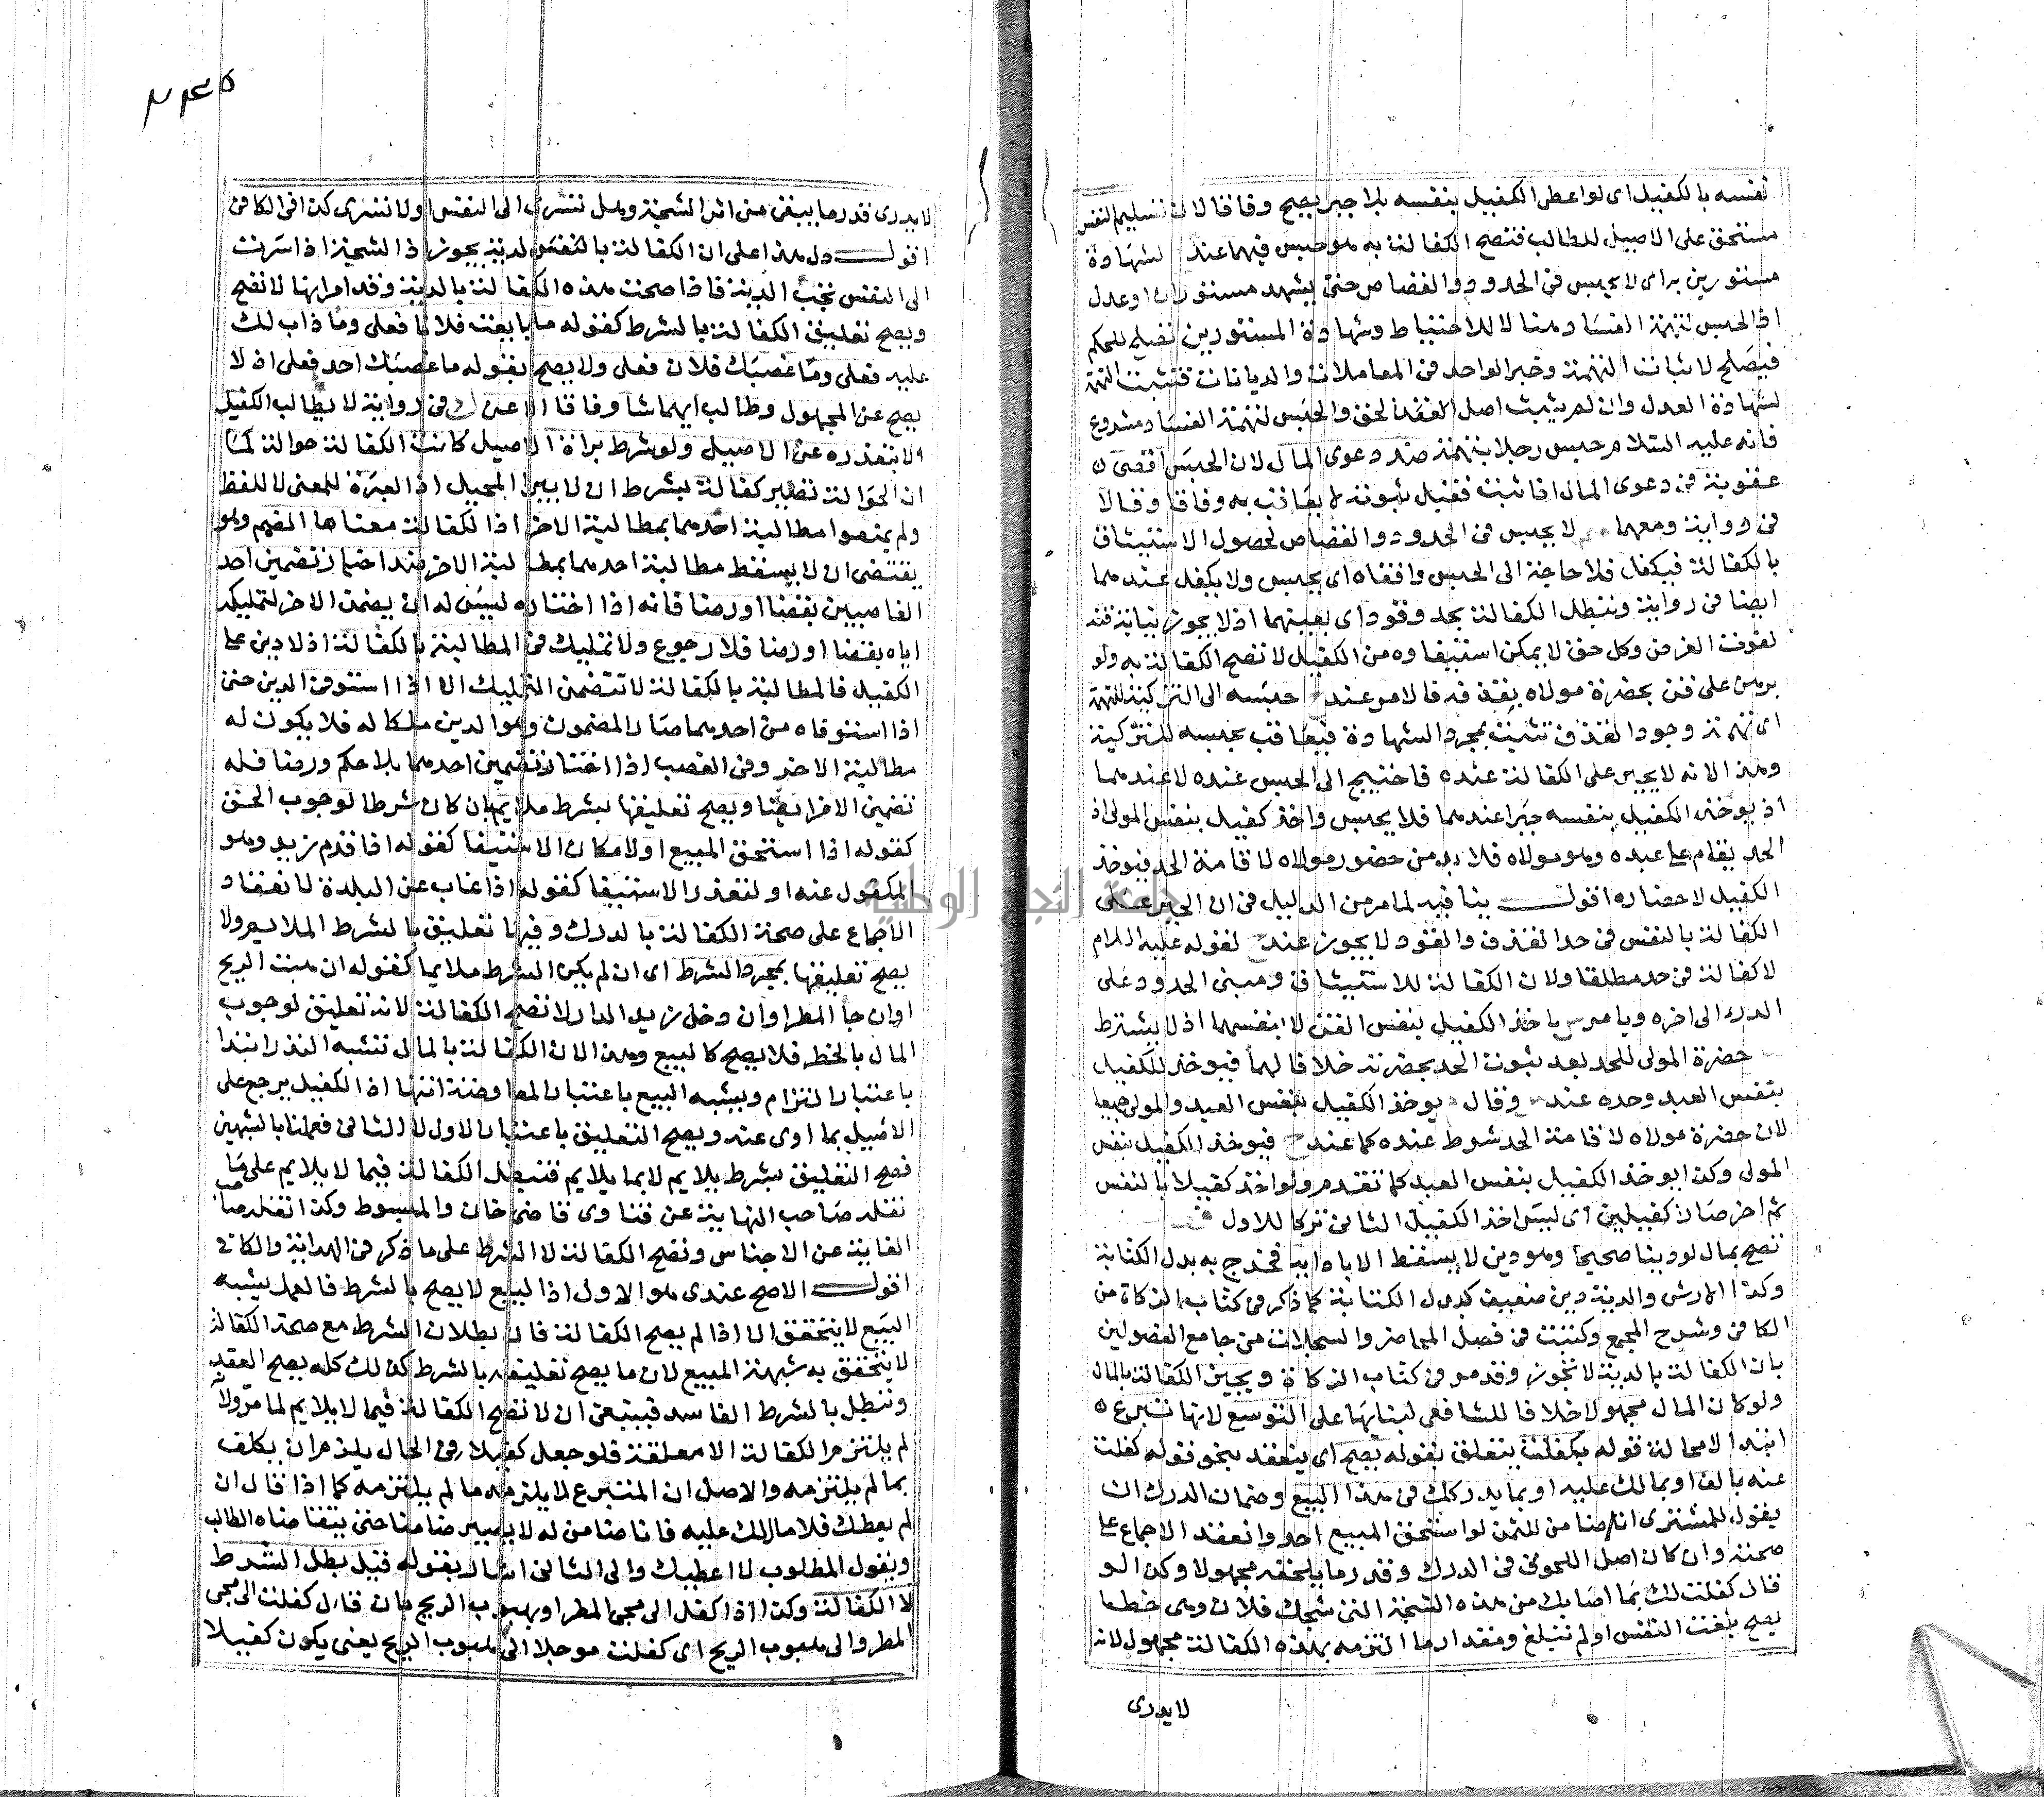 نفسه بالكفيل اى لو اعطى الكفيل بنفسه بلا جبر يصح وفاقا لان تسليم النفس
مستحق على الاصيل للطالب فتصح الكفالة به وحبس فيهما عند شهادة
مستورين به اى لا يحبس فى الحدود والقصاص حتى يشهد مستوران او عدل
اذ الحبس لتهمة الفساد وهنا للاحتياط وشهادة المستورين تصلح للحكم
فيصلح لاثبات التهمة وخبر الواحد فى المعاملات والديانات فتثبت التهمة
بشهادة العدل وان لم يثبت اصل الحق والحبس لتهمة الفساد مشروع
فانه عليه السلام حبس رجلا بتهمة ضد دعوى المال لان الحبس اقصى
عقوبة فى دعوى المال اذا ثبت فقبل ثبوته لا يعاقب به وفاقا وقالا
فى رواية ومعهما لا يحبس فى الحدود والقصاص لحصول الاستيثاق
بالكفالة فيكفل فلا حاجة الى الحبس وافقاه اى يحبس ولا يكفل عندهما
ايضا فى رواية وتبطل الكفالة بحد وقود اى بعينهما اذ لا يجوز نيابة فيه
لفوت الغرض وكل حق لا يمكن استيفاوه من الكفيل لا تصح الكفالة به ولو
برهن على قن بحضرة مولاه بقذفه فالامر عند حبسه الى التزكية للتهمة
اى تهمة وجود القذف تثبت بمجرد الشهادة فيعاقب بحبسه للتزكية
وهذا لانه لا يجبر على الكفالة عنده فاحتيج الى الحبس عنده لا عندهما
اذ يوخذ الكفيل بنفسه جبرا عندهما فلا يحبس واخذ كفيل بنفس المولى اذ
الحد يقام على عبده وهو مولاه فلا بد من حضور مولاه لاقامة الحد فيوخذ
الكفيل لاحضاره اقول ينافيه لما مر من الدليل فى ان الجبر على
الكفالة بالنفس فى حد القذف والقود لا يجوز عند لقوله عليه السلام
لا كفالة فى حد مطلقا ولان الكفالة للاستيثاق ومبنى الحدود على
الدرء الى اخره ويامر باخذ الكفيل بنفس القن لا بنفسهما اذ لا يشترط
حضرة المولى للحد بعد ثبوت الحد بحضرته خلافا لهما فيوخذ للكفيل
بنفس العبد وحده عند وقال يوخذ الكفيل بنفس العبد والمولى جميعا
لان حضرة مولاه لاقامة الحد شرط عنده كما عند فيوخذ الكفيل بنفس
المولى وكذا يوخذ الكفيل بنفس العبد كما تقدم ولو اخذ كفيلا بالنفس
ثم اخر صارا كفيلين اى ليس اخذ الكفيل الثانى تركا للاول
تصح بمال لو دينا صحيحا وهو دين لا يسقط الا باداء فخرج به بدل الكتابة
وكذا الارش والدية دين ضعيف كبدل الكتابة كما ذكر فى كتاب الزكاة من
الكافى وشرح المجمع وكتبت فى فصل المحاضر والسجلات من جامع الفصولين
بان الكفالة بالدية لا تجوز وقد مر فى كتاب الزكاة ويجيز الكفالة بالمال
ولو كان المال مجهولا خلافا للشافعى لبنايها على التوسع لانها تبرع
ابتداء لا محالة قوله بكفلت يتعلق بقوله يصح اى ينعقد بنحو قوله كفلت
عنه بالف او بما لك عليه او بما يدركك فى هذا البيع وضمان الدرك ان
يقول للمشترى انا ضامن للثمن لو استحق المبيع احد وانعقد الاجماع على
صحته وان كان اصل اللحوق فى الدرك وقدر ما يلحقه مجهولا وكذا لو
قال كفلت لك بما اصابك من هذه الشجة التى شجك فلان وهى خطا
يصح بلغت النفس او لم تبلغ ومقدار ما التزمه بهذه الكفالة مجهول لانه
لا يدرى
لا يدرى قدر ما يبقى من اثر الشجة وهل تسرى الى النفس اولا تسرى كذا فى الكافى
اقول دل هذا على ان الكفالة بالنفس لدية يجوز اذ الشجة اذا سرت
الى النفس تجب الدية فاذا صحت هذه الكفالة بالدية وقد مر انها لا تصح
ويصح تعليق الكفالة بالشرط كقوله ما بايعت فلانا فعلى وما ذاب لك
عليه فعلى وما غصبك فلان فعلى ولا يصح بقوله ما غصبك احد فعلى اذ لا
يصح عن المجهول وطالب ايهما شا وفاقا الا عن فى رواية لا يطالب الكفيل
الا بتعذره عن الاصيل ولو شرط براة الاصيل كانت الكفالة حوالة كما
ان الحوالة تصير كفالة بشرط ان لا يبرا المحيل اذ العبرة للمعنى لا للفظ
ولم يمنعوا مطالبة احدهما بمطالبة الاخر اذ الكفالة معناها الضم وهو
يقتضى ان لا يسقط مطالبة احدهما بمطالبة الاخر ضد اختيار تضمين احد
الغاصبين بقضا او رضا فانه اذا اختاره ليس له ان يضمن الاخر لتمليكه
اياه بقضا او رضا فلا رجوع ولا تمليك فى المطالبة بالكفالة اذ لا دين على
الكفيل فالمطالبة بالكفالة لا تتضمن التمليك الا اذا استوفى الدين حتى
اذا استوفاه من احدهما صار المضمون وهو الدين ملكا له فلا يكون له
مطالبة الاخر وفى الغصب اذا اختار تضمين احدهما بلا حكم ورضا فله
تضمين الاخر ايضا ويصح تعليقها بشرط ملايم بان كان شرطا لوجوب الحق
كقوله اذا استحق المبيع او لامكان الاستيفا كقوله اذا قدم زيد وهو
المكفول عنه او لتعذر الاستيفا كقوله اذا غاب عن البلدة لانعقاد
الاجماع على صحة الكفالة بالدرك وفيها تعليق بالشرط الملايم ولا
يصح تعليقها بمجرد الشرط اى ان لم يكن الشرط ملايما كقوله ان هبت الريح
او ان جا المطر او ان دخل زيد الدار لا تصح الكفالة لانه تعليق لوجوب
المال بالخطر فلا يصح كالبيع وهذا لان الكفالة بالمال تشبه النذر ابتدا
باعتبار التزام ويشبه البيع باعتبار المعاوضة انتها اذ الكفيل يرجع على
الاصيل بما ادى عنه ويصح التعليق باعتبار الاول لا الثانى فعملنا بالشبهين
فصح التعليق بشرط يلايم لا بما يلايم فتبطل الكفالة فيما لا يلايم على ما
نقله صاحب النهاية عن فتاوى قاضى خان والمبسوط وكذا نقله صاحب
الغاية عن الاجناس وتصح الكفالة لا الشرط على ما ذكر فى الهداية والكافى
اقول الاصح عندى هو الاول اذ البيع لا يصح بالشرط فالعمل بشبه
البيع لا يتحقق الا اذا لم يصح الكفالة فان بطلان الشرط مع صحة الكفالة
لا يتحقق به شبهة المبيع لان ما يصح تعليقه بالشرط كذلك كله يصح العقد
وتبطل بالشرط الفاسد فينبغى ان لا تصح الكفالة فيما لا يلايم لما مر ولانه
لم يلتزم الكفالة الا معلقة فلو جعل كفيلا فى الحال يلزم ان يكلف
بما لم يلتزمه والاصل ان المتبرع لا يلزمه ما لم يلتزمه كما اذا قال ان
لم يعطك فلان مالك عليه فانا ضامن له لا يصير ضامنا حتى يتقاضاه الطالب
ويقول المطلوب لا اعطيك والى الثانى اشار بقوله قيل بطل الشرط
لا الكفالة وكذا اذا كفل الى مجى المطر او بهبوب الريح بان قال كفلت الى مجى
المطر والى هبوب الريح اى كفلت موجلا الى هبوب الريح يعنى يكون كفيلا
جامعة النجاح الوطنية